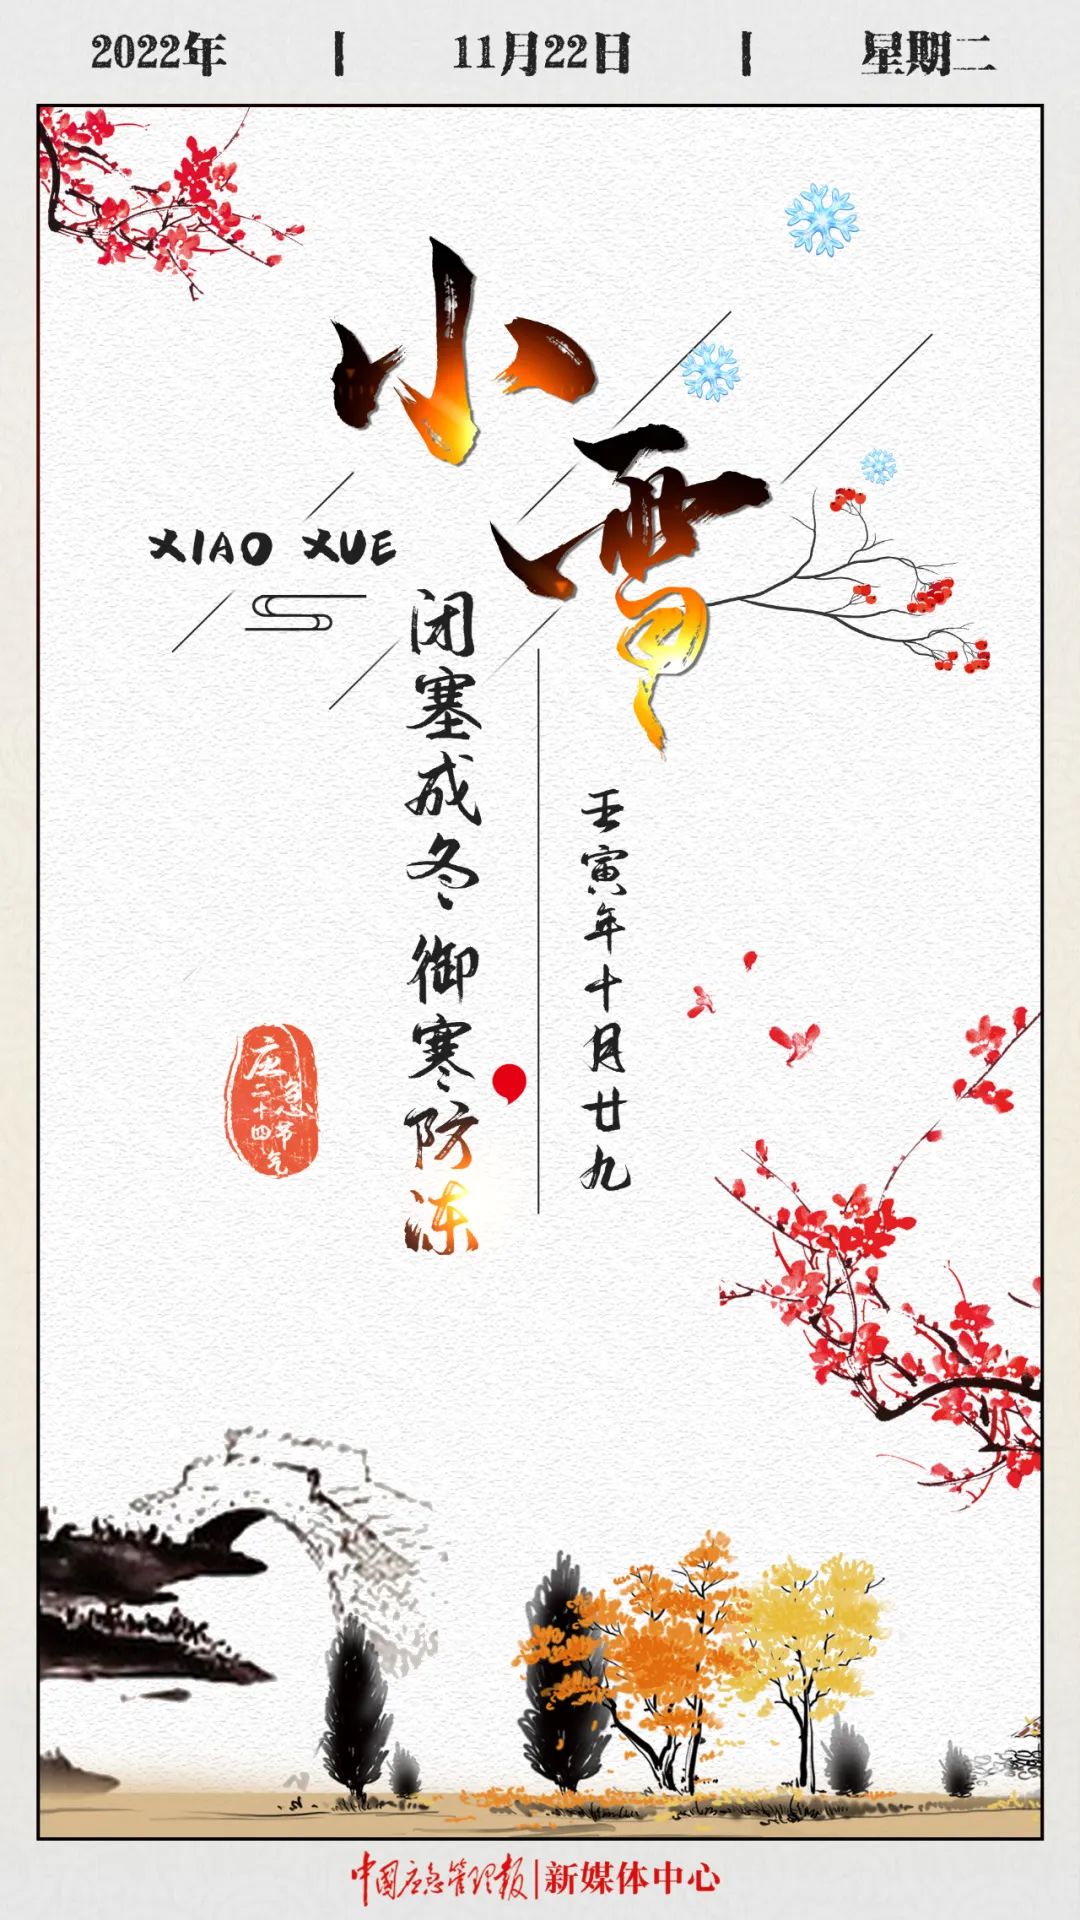 2022年 | 11月22日 | 星期二
小雪
XIAO XUE
闭塞成冬 御寒防冻
壬寅年十月廿九
应急
二十四节气
中国应急管理报|新媒体中心